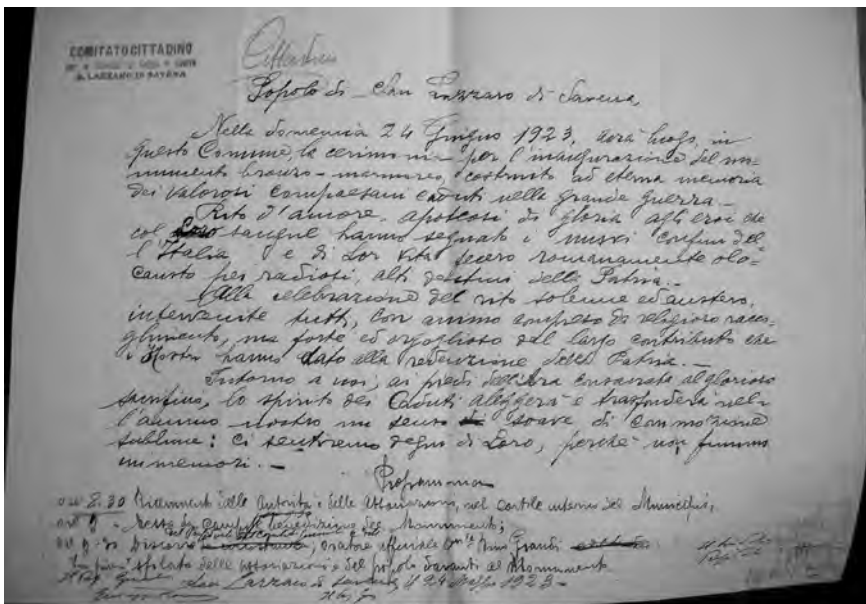 COMITATO CITTADINO
S. LAZZARO DI SAVENA
Cittadini
Popolo di San Lazzaro di Savena,
Nella domenica 24 Giugno 1923, avrà luogo, in
questo Comune, la cerimonia per l'inaugurazione del mo=
numento bronzo-marmoreo, costruito ad eterna memoria
dei valorosi compaesani caduti nella grande guerra._
Rito d'amore, apoteosi di gloria agli eroi che
col loro sangue hanno segnato i nuovi confini del=
l'Italia, e di Lor vita fecero romanamente olo=
causto per radiosi, alti destini della Patria._
Alla celebrazione del rito solenne ed austero,
intervenite tutti, con animo compreso da religioso racco=
glimento, ma forte ed orgoglioso del largo contributo che
i Nostri hanno dato alla redenzione della Patria._
Intorno a noi, ai piedi dell'Ara consacrata al glorioso
sacrificio, lo spirito dei Caduti aleggerà e trasfonderà nel=
l'animo nostro un senso di soave di commozione
sublime: ci sentiremo degni di Loro, perchè non fummo
immemori._
Programma
ore 8.30 Ricevimento delle Autorità e delle Associazioni, nel cortile interno del Municipio;
ore 9 - Messa da campo e benedizione del Monumento;
ore 9.30 Discorso oratore ufficiale Grandi
sfilata delle associazioni e del popolo davanti al Monumento
San Lazzaro di Savena, il 24 1923-